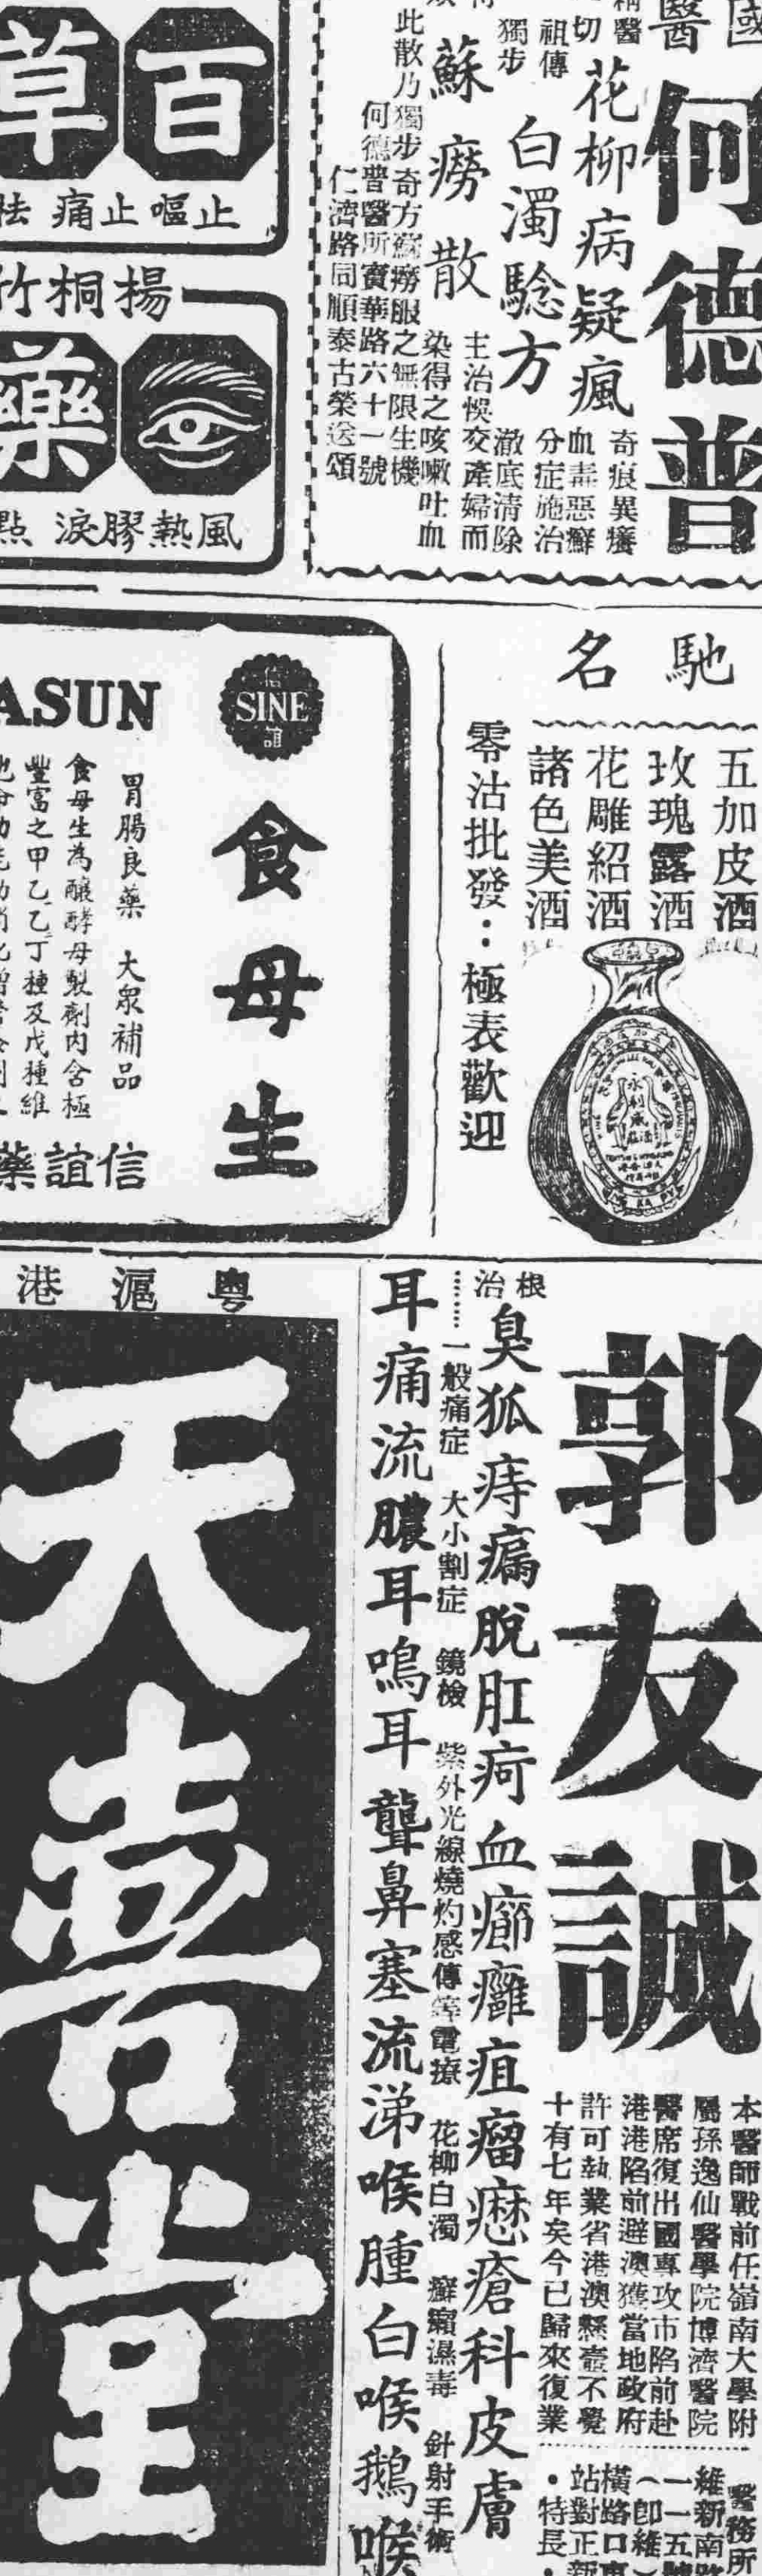 國
醫
何德普
精醫
一切
花柳病疑瘋
奇痕異癢
血毒惡癬
分症施治
祖傳
獨步
白濁騐方
澈底清除
蘇癆散
主治悞交產婦而
染得之咳嗽吐血
此散乃獨步奇方蘇癆服之無限生機
何德普醫所寶華路六十一號
仁濟路同順泰古榮送頌
百草
止嘔止痛祛
揚桐竹
藥
風熱膠淚點
馳名
五加皮酒
玫瑰露酒
花雕紹酒
諸色美酒
零沽批發：極表歡迎
永利威
ASUN
信
SINE
誼
食母生
胃腸良藥 大眾補品
食母生為釀酵母製劑內含極
豐富之甲乙乙丁種及戊種維
信誼藥
郭友誠
本醫師戰前任嶺南大學附
屬孫逸仙醫學院博濟醫院
醫席復出國專攻市陷前赴
港港陷前避澳獲當地政府
許可執業省港澳懸壺不覺
十有七年矣今已歸來復業
醫務所
維新南路
一一五號
（卽維
橫路口東
站對正新
・特長・
根治
臭狐痔瘺脫肛疴血癤癰疽瘤瘛瘡科皮膚
一般痛症 大小割症 鏡檢 紫外光線燒灼感傳等電療 花柳白濁 癬癩濕毒 針射手術
耳痛流膿耳鳴耳聾鼻塞流涕喉腫白喉鵝喉
粵滬港
天壹堂